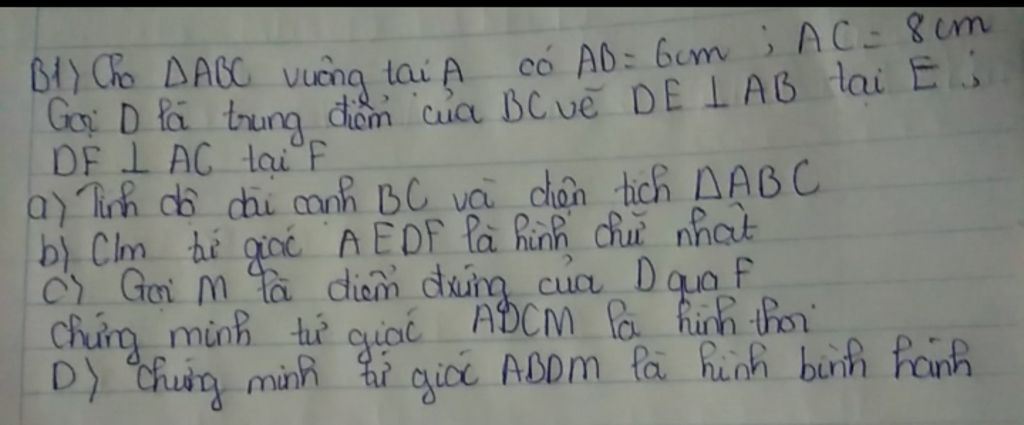 B1) Cho ΔABC vuông tại A có AB = 6cm ; AC = 8cm
Gọi D là trung điểm của BC vẽ DE ⊥ AB tại E ;
DF ⊥ AC tại F
a) Tính độ dài cạnh BC và diện tích ΔABC
b) C/m tứ giác AEDF là hình chữ nhật
c) Gọi M là điểm đxứng của D qua F
chứng minh tứ giác ADCM là hình thoi
D) chứng minh tứ giác ABDM là hình bình hành